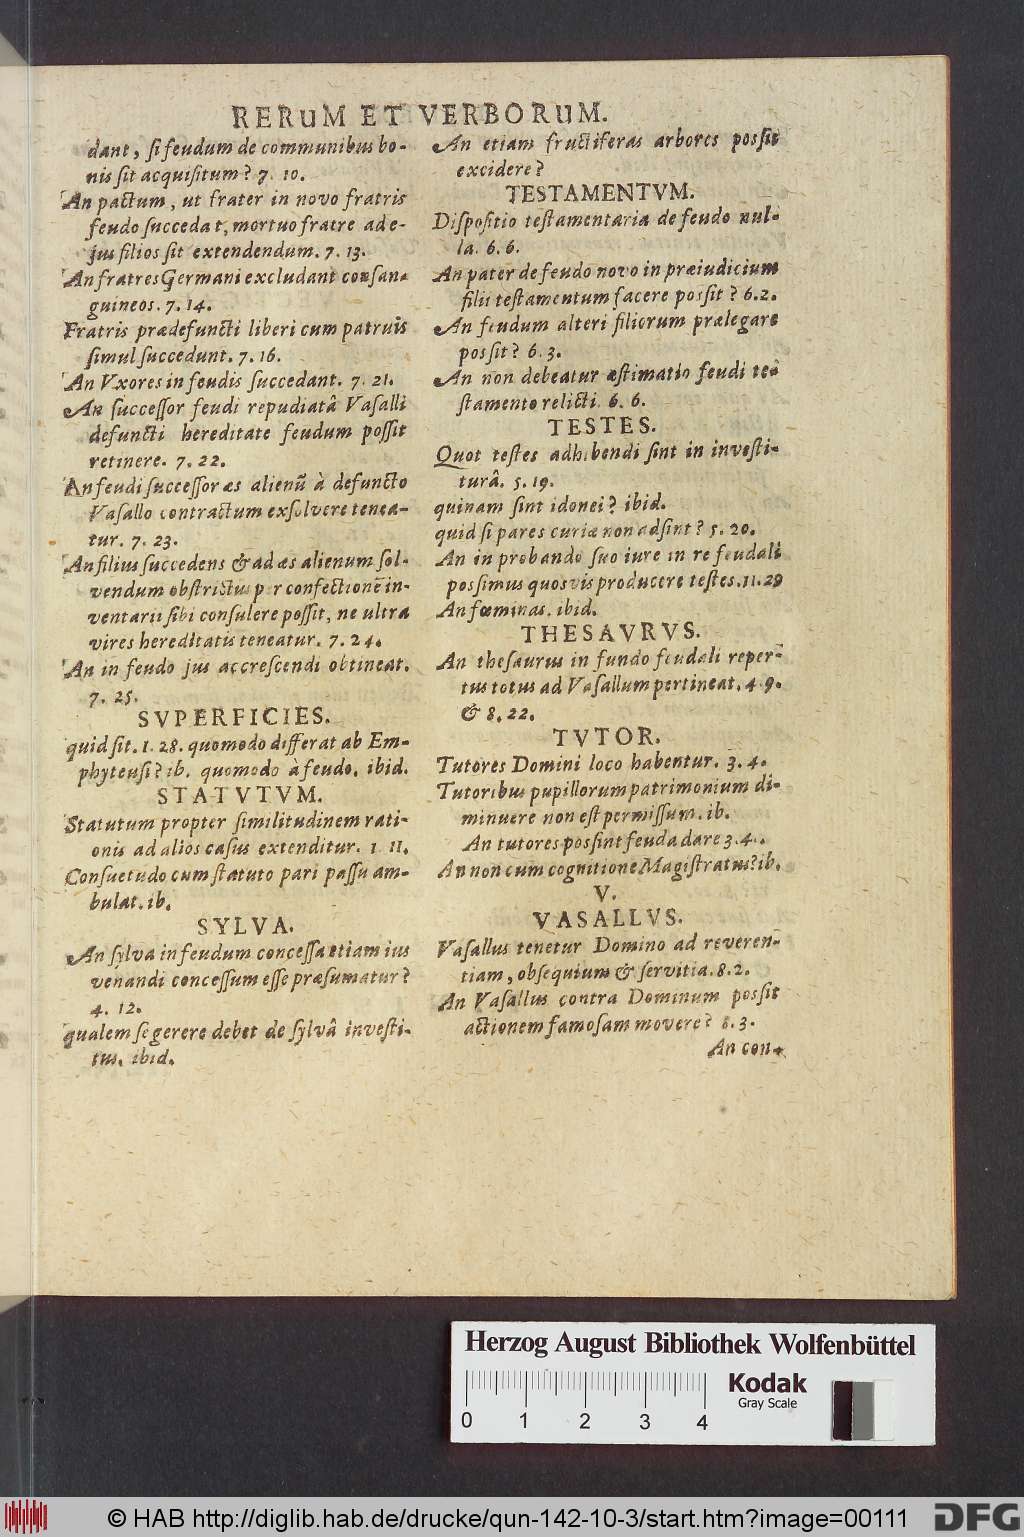 RERUM ET VERBORUM.
dant, si feudum de communibus bo-
nis sit acquisitum? 7. 10.
An pactum, ut frater in novo fratris
feudo succedat, mortuo fratre ad e-
jus filios sit extendendum. 7. 13.
An fratres Germani excludant consan-
guineos. 7. 14.
Fratris prædefuncti liberi cum patruis
simul succedunt. 7. 16.
An Vxores in feudis succedant. 7. 21.
An successor feudi repudiatâ Vasalli
defuncti hereditate feudum possit
retinere. 7. 22.
An feudi successor æs alienũ à defuncto
Vasallo contractum exsolvere tenea-
tur. 7. 23.
An filius succedens & ad æs alienum sol-
vendum obstrictus per confectionẽ in-
ventarii sibi consulere possit, ne ultra
vires hereditatis teneatur. 7. 24.
An in feudo jus accrescendi obtineat.
7. 25.
SVPERFICIES.
quid sit. 1. 28. quomodo differat ab Em-
phyteusi? ib. quomodo à feudo. ibid.
STATVTVM.
Statutum propter similitudinem rati-
onis ad alios casus extenditur. 1. 11.
Consuetudo cum statuto pari passu am-
bulat. ib.
SYLVA.
An sylva in feudum concessa etiam ius
venandi concessum esse præsumatur?
4. 12.
qualem se gerere debet de sylvâ investi-
tus. ibid.
An etiam fructiferas arbores possit
excidere?
TESTAMENTVM.
Dispositio testamentaria de feudo nul-
la. 6. 6.
An pater de feudo novo in præiudicium
filii testamentum facere possit? 6. 2.
An feudum alteri filiorum prælegare
possit? 6. 3.
An non debeatur æstimatio feudi te-
stamento relicti. 6. 6.
TESTES.
Quot testes adhibendi sint in investi-
turâ. 5. 19.
quinam sint idonei? ibid.
quid si pares curiæ non adsint? 5. 20.
An in probando suo iure in re feudali
possimus quosvis producere testes. 11. 29
An fœminas. ibid.
THESAVRVS.
An thesaurus in fundo feudali reper-
tus totus ad Vasallum pertineat. 4. 9.
& 8. 22.
TVTOR.
Tutores Domini loco habentur. 3. 4.
Tutoribus pupillorum patrimonium di-
minuere non est permissum. ib.
An tutores possint feuda dare 3. 4.
An non cum cognitione Magistratus? ib.
V.
VASALLVS.
Vasallus tenetur Domino ad reveren-
tiam, obsequium & servitia. 8. 2.
An Vasallus contra Dominum possit
actionem famosam movere? 8. 3.
An con-
Herzog August Bibliothek Wolfenbüttel
Kodak
Gray Scale
0 1 2 3 4
© HAB http://diglib.hab.de/drucke/qun-142-10-3/start.htm?image=00111
DFG